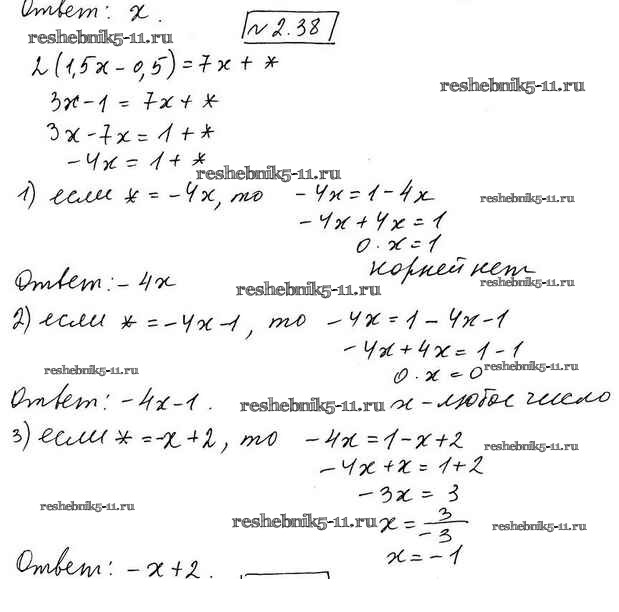 Ответ: x.
№ 2.38
reshebnik5-11.ru
2(1,5x-0,5)=7x+*
reshebnik5-11.ru
3x-1=7x+*
3x-7x=1+*
-4x=1+*
reshebnik5-11.ru
1) если *=-4x, то -4x=1-4x
reshebnik5-11.ru
-4x+4x=1
0·x=1
корней нет
Ответ: -4x
reshebnik5-11.ru
reshebnik5-11.ru
2) если *=-4x-1, то -4x=1-4x-1
-4x+4x=1-1
reshebnik5-11.ru
reshebnik5-11.ru
0·x=0
Ответ: -4x-1.
reshebnik5-11.ru
x-любое число
3) если *=-x+2, то -4x=1-x+2
reshebnik5-11.ru
-4x+x=1+2
-3x=3
reshebnik5-11.ru
reshebnik5-11.ru
x=3/-3
reshebnik5-11.ru
x=-1
Ответ: -x+2.